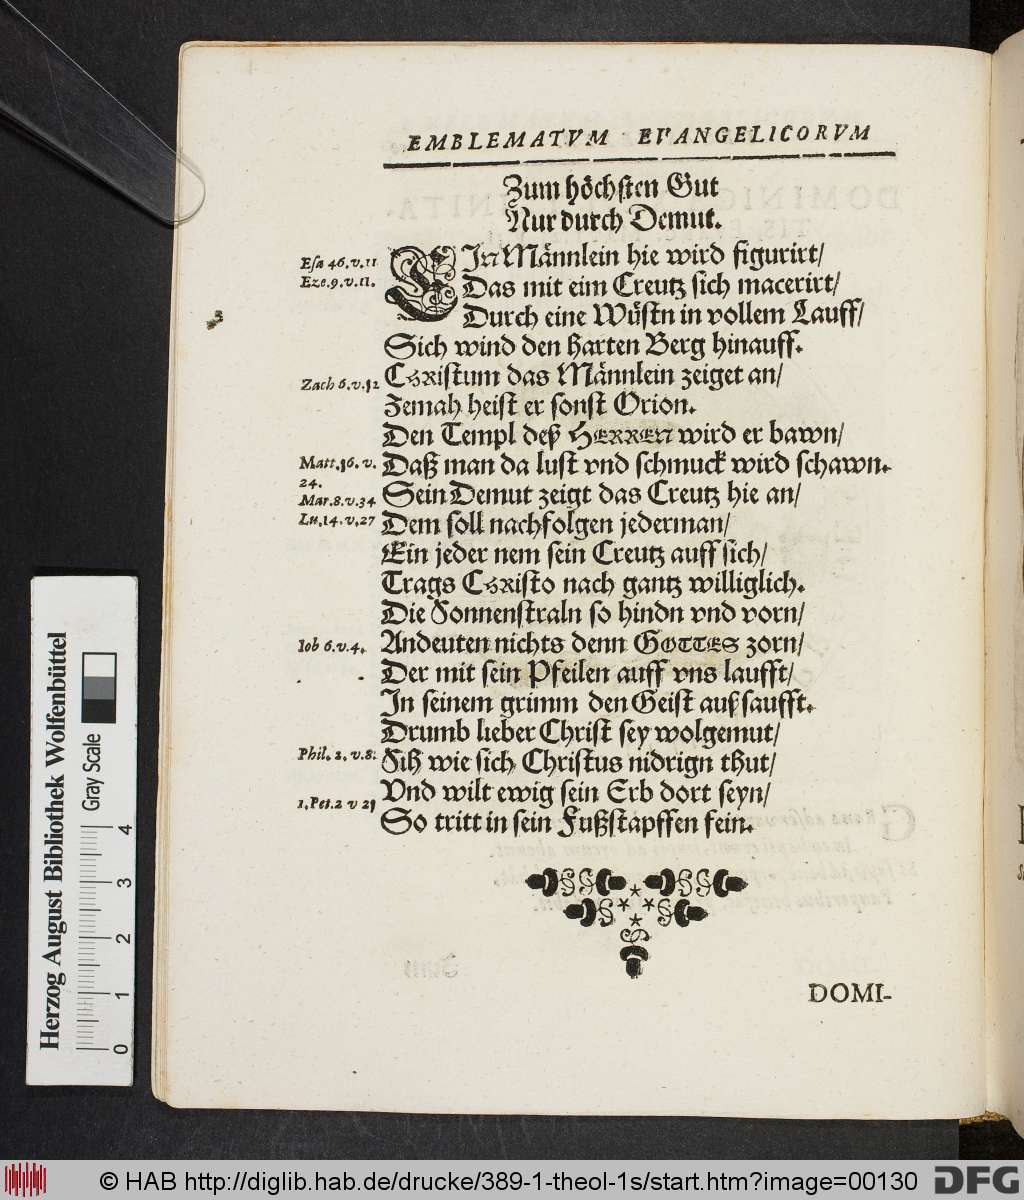 EMBLEMATVM EVANGELICORVM
Zum höchsten Gut
Nur durch Demut.
Esa 46.v.11
Eze.9.v.11.
EIn Männlein hie wird figurirt/
Das mit eim Creutz sich macerirt/
Durch eine Wüstn in vollem Lauff/
Sich wind den harten Berg hinauff.
Zach 6.v.12
CHRistum das Männlein zeiget an/
Zemah heist er sonst Orion.
Den Templ deß HERREN wird er bawn/
Matt.16.v.
24.
Daß man da lust vnd schmuck wird schawn.
Mar.8.v.34
Sein Demut zeigt das Creutz hie an/
Lu.14.v.27
Dem soll nachfolgen jederman/
Ein jeder nem sein Creutz auff sich/
Trags CHRisto nach gantz williglich.
Die Sonnenstraln so hindn vnd vorn/
Iob 6.v.4.
Andeuten nichts denn GOTTES zorn/
Der mit sein Pfeilen auff vns laufft/
In seinem grimm den Geist auß saufft.
Drumb lieber Christ sey wolgemut/
Phil. 2. v.8.
Sih wie sich Christus nidrign thut/
Vnd wilt ewig sein Erb dort seyn/
1.Pet.2 v 21
So tritt in sein Fußstapffen fein.
DOMI-
Herzog August Bibliothek Wolfenbüttel
Gray Scale
0 1 2 3 4
© HAB http://diglib.hab.de/drucke/389-1-theol-1s/start.htm?image=00130
DFG